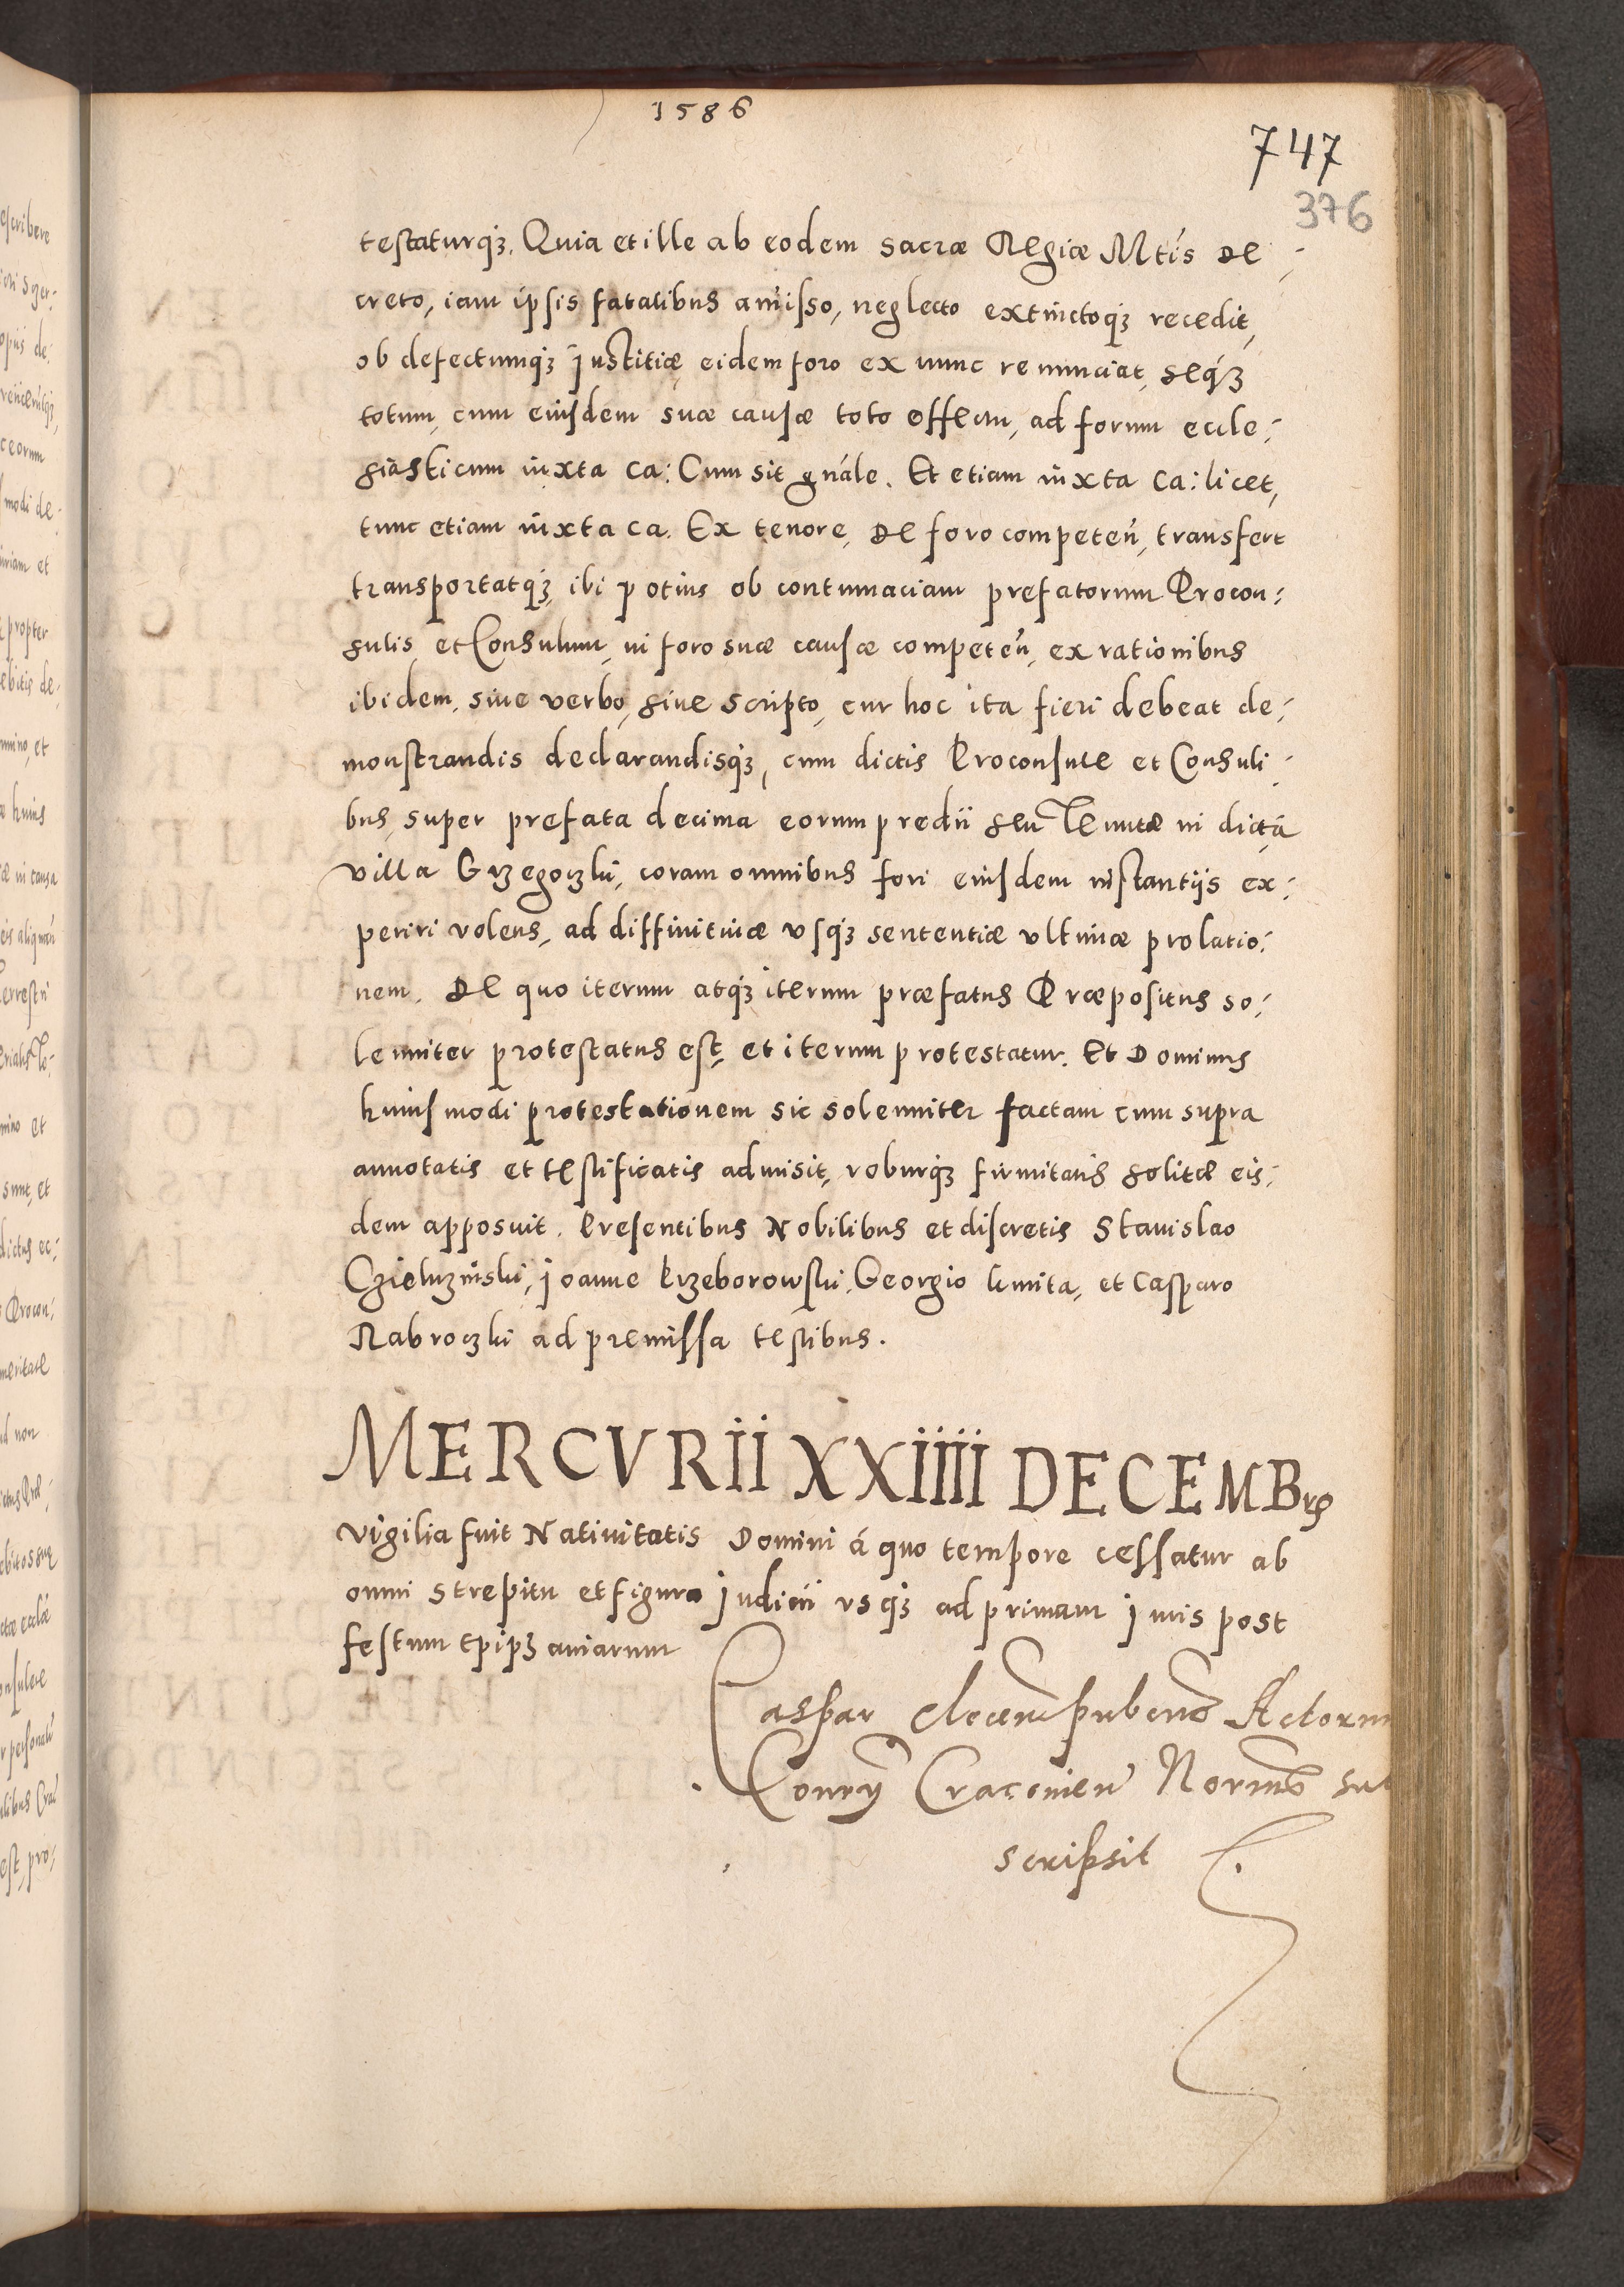 1586
747
376
testaturq₃. Quia et ille ab eodem sacræ Regiæ Mtis de:
creto, iam ipsis fatalibus amisso, neglecto extinctoq₃ recedit,
ob defectumq₃ justitiæ eidem foro ex nunc renunciat, seq₃
totum, cum eiusdem suæ causæ toto effectu, ad forum eccle:
siasticum iuxta ca: Cum sit gnále. Et etiam iuxta ca: licet,
tunc etiam iuxta ca. Ex tenore, de foro competeń, transfert
transportatq₃, ibi potius ob contumaciam prefatorum Procon:
sulis et Consulum, in foro suæ causæ competeń, ex rationibus
ibidem, siue verbo, siue scripto, cur hoc ita fieri debeat de:
monstrandis declarandisq₃, cum dictis Proconsule et Consuli:
bus, super prefata decima eorum predii seu Tenutæ in dicta
villa Grzegorzki, coram omnibus fori eiusdem instantijs ex:
periri volens, ad diffinitiuæ vsq₃ sententiæ vltimæ prolatio:
nem. De quo iterum atq₃ iterum præfatus Præpositus so:
lenniter protestatus est, et iterum protestatur. Et Dominus
huiusmodi protestationem sic solenniter factam cum supra
annotatis et testificatis admisit, roburq₃ firmitatis solitæ eis:
dem apposuit. Presentibus Nobilibus et discretis Stanislao
joanne Przeborowski, Georgio et Casparo
ad premissa testibus.
MERCVRII XXIIII DECEMBrs
vigilia fuit Natiuitatis Domini á quo tempore cessatur ab
omni strepitu et figura judicii vsq₃ ad primam juris post
festum epip₃aniarum
Caspar Actorum
Craconien
scripsit